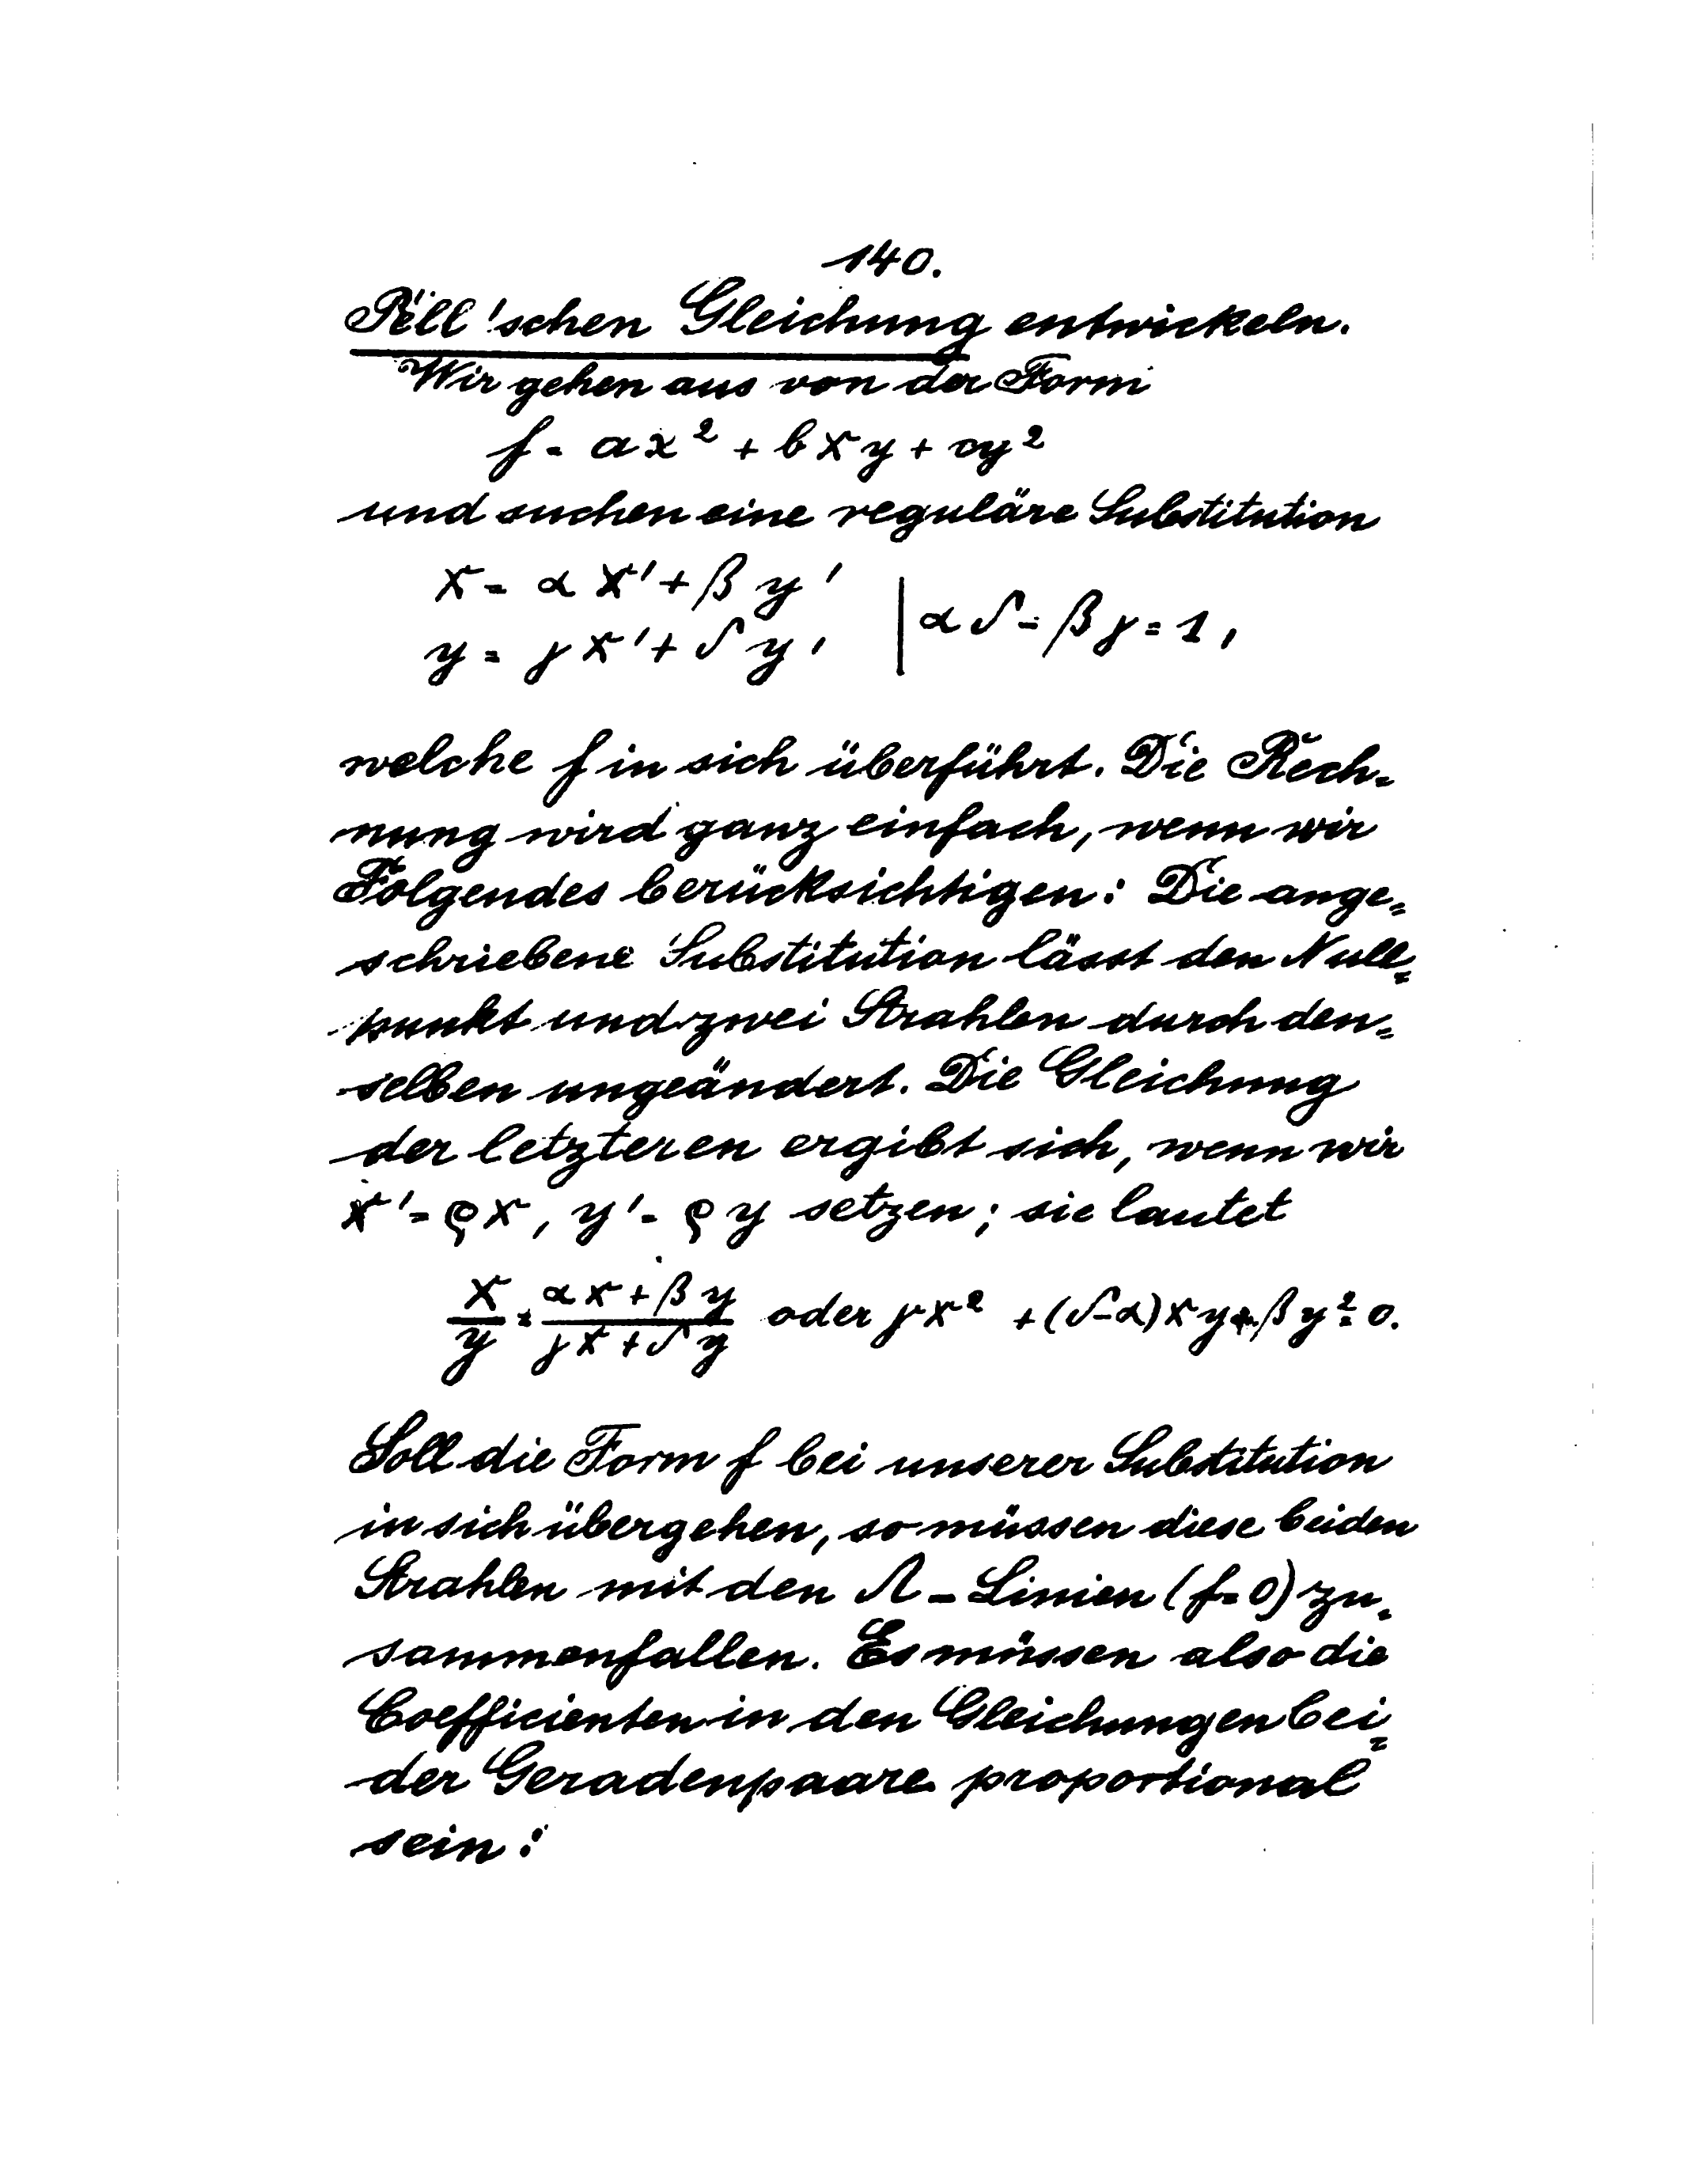 140.
Pell'schen Gleichung entwickeln.
Wir gehen aus von der Form
f = ax² + bxy + cy²
und suchen eine reguläre Substitution
x = αx' + βy'
y = γx' + δy' | αδ - βγ = 1,
welche f in sich überführt. Die Rech=
nung wird ganz einfach, wenn wir
Folgendes berücksichtigen: Die ange=
schriebene Substitution lässt den Null=
punkt und zwei Strahlen durch den=
selben ungeändert. Die Gleichung
der letzteren ergibt sich, wenn wir
x' = ϱx, y' = ϱy setzen; sie lautet
x/y = (αx + βy)/(γx + δy) oder γx² + (δ-α)xy + βy² = 0.
Soll die Form f bei unserer Substitution
in sich übergehen, so müssen diese beiden
Strahlen mit den Λ-Linien (f = 0) zu=
sammenfallen. Es müssen also die
Coefficienten in den Gleichungen bei=
der Geradenpaare proportional
sein: